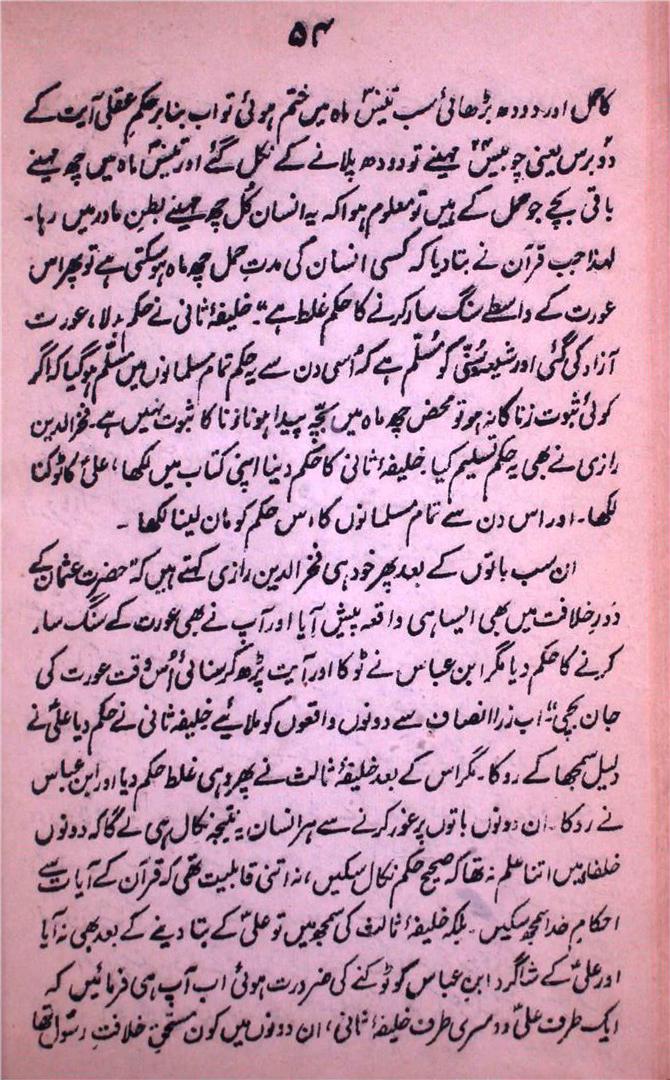 ۵۴
کامل اور دودھ بڑھائی سب تیس ماہ میں ختم ہوئی تو اب بنا بر حکم عقلی آیت کے
دو برس یعنی چوبیس مہینے تو دودھ پلانے کے نکل گئے اور تیس ماہ میں چھ مہینے
باقی بچے جو حمل کے ہیں تو معلوم ہوا کہ یہ انسان کُل چھ مہینے بطن مادر میں رہا۔
لہذا جب قرآن نے بتا دیا کہ کسی انسان کی مدتِ حمل چھ ماہ ہو سکتی ہے تو پھر اس
عورت کے واسطے سنگ سار کرنے کا حکم غلط ہے"۔ خلیفۂ ثانی نے حکم بدلا، عورت
آزاد کی گئی اور شیعہ سنّی کو مُسلّم ہے کہ اُسی دن سے یہ حکم تمام مسلمانوں میں مسلّم ہو گیا کہ اگر
کوئی ثبوت زنا کا نہ ہو تو محض چھ ماہ میں بچّہ پیدا ہونا زنا کا ثبوت نہیں ہے۔ فخرالدین
رازی نے بھی یہ حکم تسلیم کیا۔ خلیفۂ ثانی کا حکم دینا اپنی کتاب میں لکھا، علیؑ کا ٹوکنا
لکھا۔ اور اس دن سے تمام مسلمانوں کا اس حکم کو مان لینا لکھا۔
ان سب باتوں کے بعد پھر خود ہی فخر الدین رازی کہتے ہیں کہ "حضرت عثمان کے
دَورِ خلافت میں بھی ایسا ہی واقعہ پیش آیا اور آپ نے بھی عورت کے سنگ سار
کرنے کا حکم دیا مگر ابن عباس نے ٹوکا اور آیت پڑھ کر سنائی اُس وقت عورت کی
جان بچی"۔ اب ذرا انصاف سے دونوں واقعوں کو ملائیے خلیفۂ ثانی نے حکم دیا علیؑ نے
دلیل سمجھا کے روکا۔ مگر اس کے بعد خلیفۂ ثالث نے پھر وہی غلط حکم دیا اور ابن عباس
نے روکا۔ ان دونوں باتوں پر غور کرنے سے ہر انسان یہ نتیجہ نکال ہی لے گا کہ دونوں
خلفاء میں اتنا علم نہ تھا کہ صحیح حکم نکال سکیں، نہ اتنی قابلیت تھی کہ قرآن کے آیات سے
احکام خدا سمجھ سکیں۔ بلکہ خلیفۂ ثالث کی سمجھ میں تو علیؑ کے بتا دینے کے بعد بھی نہ آیا
اور علیؑ کے شاگرد ابن عباس کو ٹوکنے کی ضرورت ہوئی اب آپ ہی فرمائیں کہ
ایک طرف علیؑ و دوسری طرف خلیفۂ ثانی، ان دونوں میں کون مستحق خلافتِ رسولؐ تھا